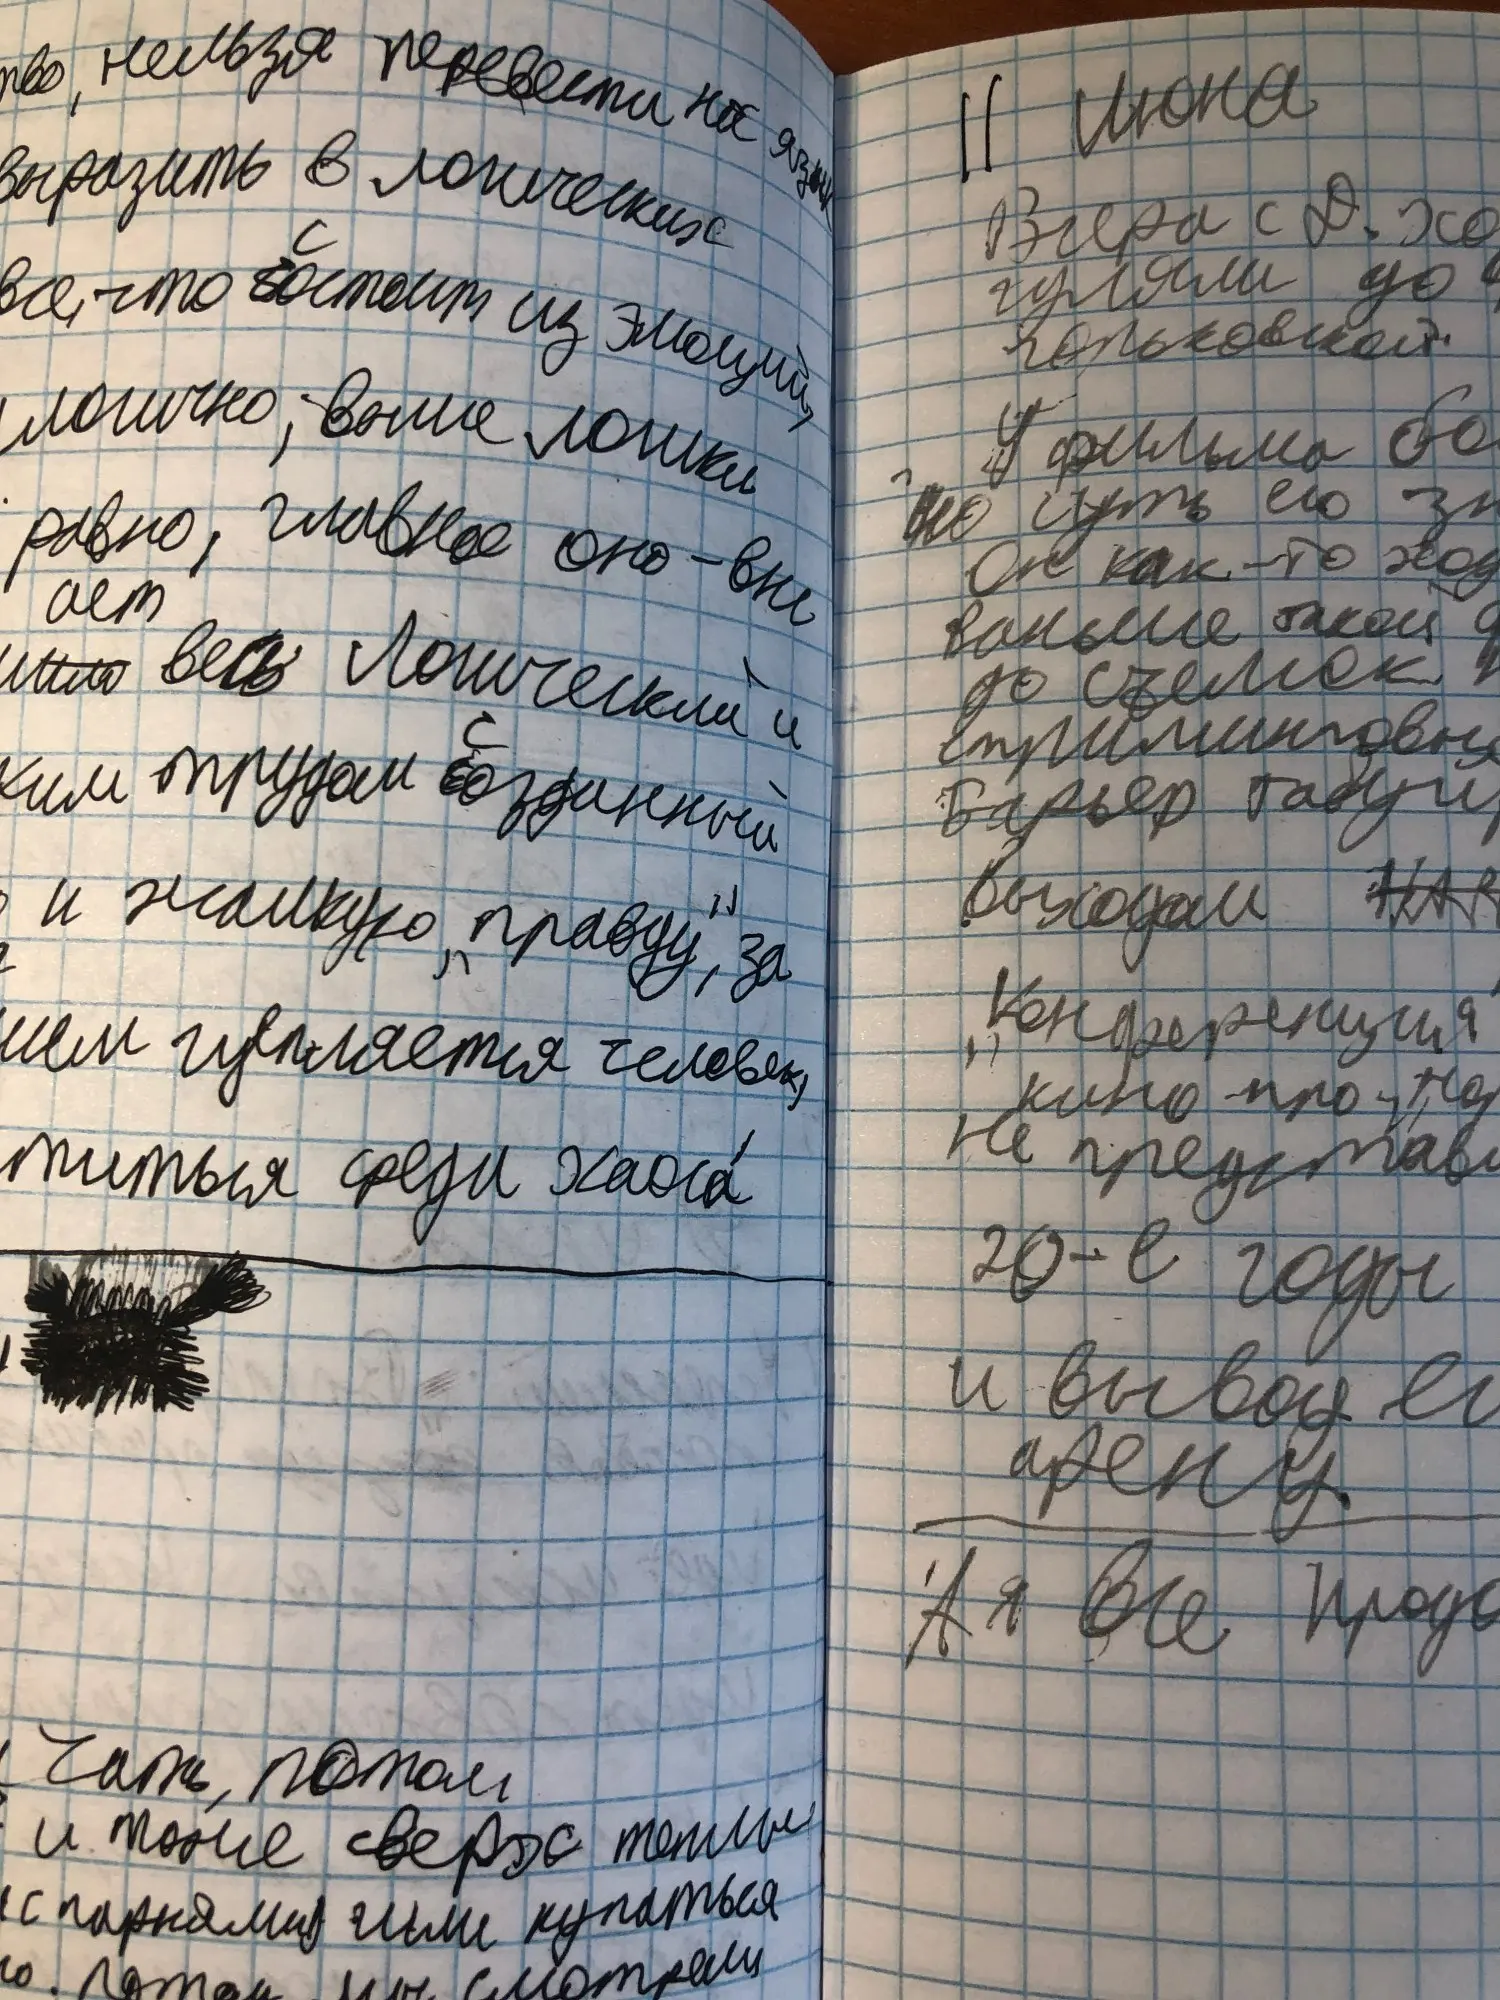 тво, нельзя перевести на язык
выразить в логических
все, что состоит из эмоций,
логично, выше логики
равно, главное оно - вне
ает
весь логический и
ким трудом созданный
и жалкую „правду", за
цепляется человек,
титься среди хаоса
чать, потом
и тоже сверх теплы
с парнями купаться
потом мы смотрели
11 Июня
Вчера с Д. хо
гуляли до
горьковской.
У фильма бо
но суть его
Он как-то ход
раньше такой
до съемок
стриминговы
Барьер
выходом HAR
„Конференция
кино-про-
не представ
20-е годы
и вывод ег
арену.
А я все продо